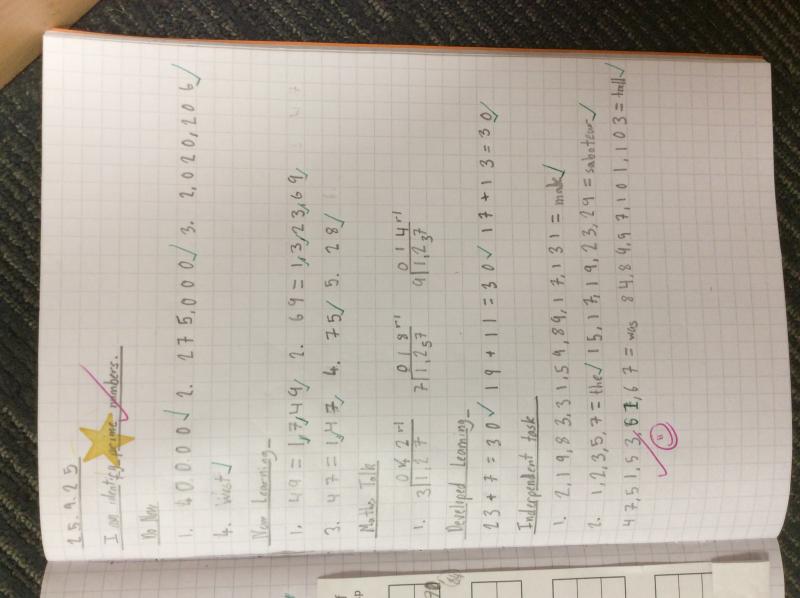 25.9.25
I can identify prime numbers.
Do Now
1. 40,000 2. 275,000 3. 2,020,206
4. West
New Learning
1. 49 = 1,7,49 2. 69 = 1,3,23,69
3. 47 = 1,47 4. 75 5. 28
Maths Talk
042r1 018r1 014r1
1. 3|127 7|1,257 9|1,237
Developed Learning
23+7=30 19+11=30 17+13=30
Independent task
1. 2,19,83,31,59,89,17,131 = male
2. 1,2,3,5,7 = the 15,17,19,23,29 = saboteur
47,51,53,61,67 = was 84,89,97,101,103 = tall